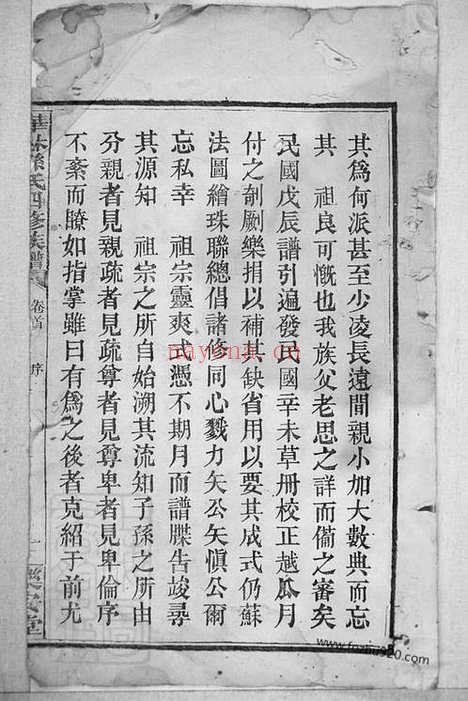 其為何派甚至少凌長遠間親小加大數典而忘
其　祖良可慨也我族父老思之詳而備之審矣
民國戊辰譜引遍發民國辛未草册校正越瓜月
付之剞劂樂捐以補其缺省用以要其成式仍蘇
法圖繪珠聯總倡諸修同心戮力矢公矢慎公爾
忘私幸　祖宗靈爽式憑不期月而譜牒告竣尋
其源知　祖宗之所自始溯其流知子孫之所由
分親者見親疏者見疏尊者見尊卑者見卑倫序
不紊而瞭如指掌雖曰有為之後者克紹于前尤
華林孫氏四修族譜
卷首
序
樂安堂
nayona.cn
www.fozhu920.com